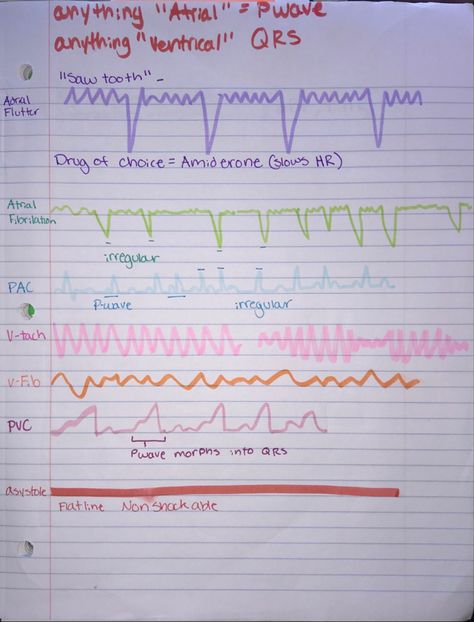 anything "Atrial" = Pwave
anything "ventrical" QRS
"Saw tooth" -
Atrial
Flutter
Drug of choice = Amiderone (slows HR)
Atrial
Fibrilation
irregular
PAC
P-wave irregular
V-tach
V-Fib
PVC
Pwave morphs into QRS
asystole
Flatline Non shockable